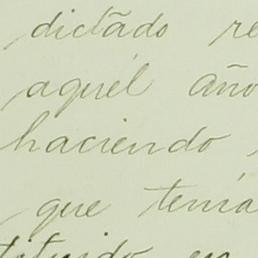 dictado re
aquél año
haciendo
que tenía
tituido en